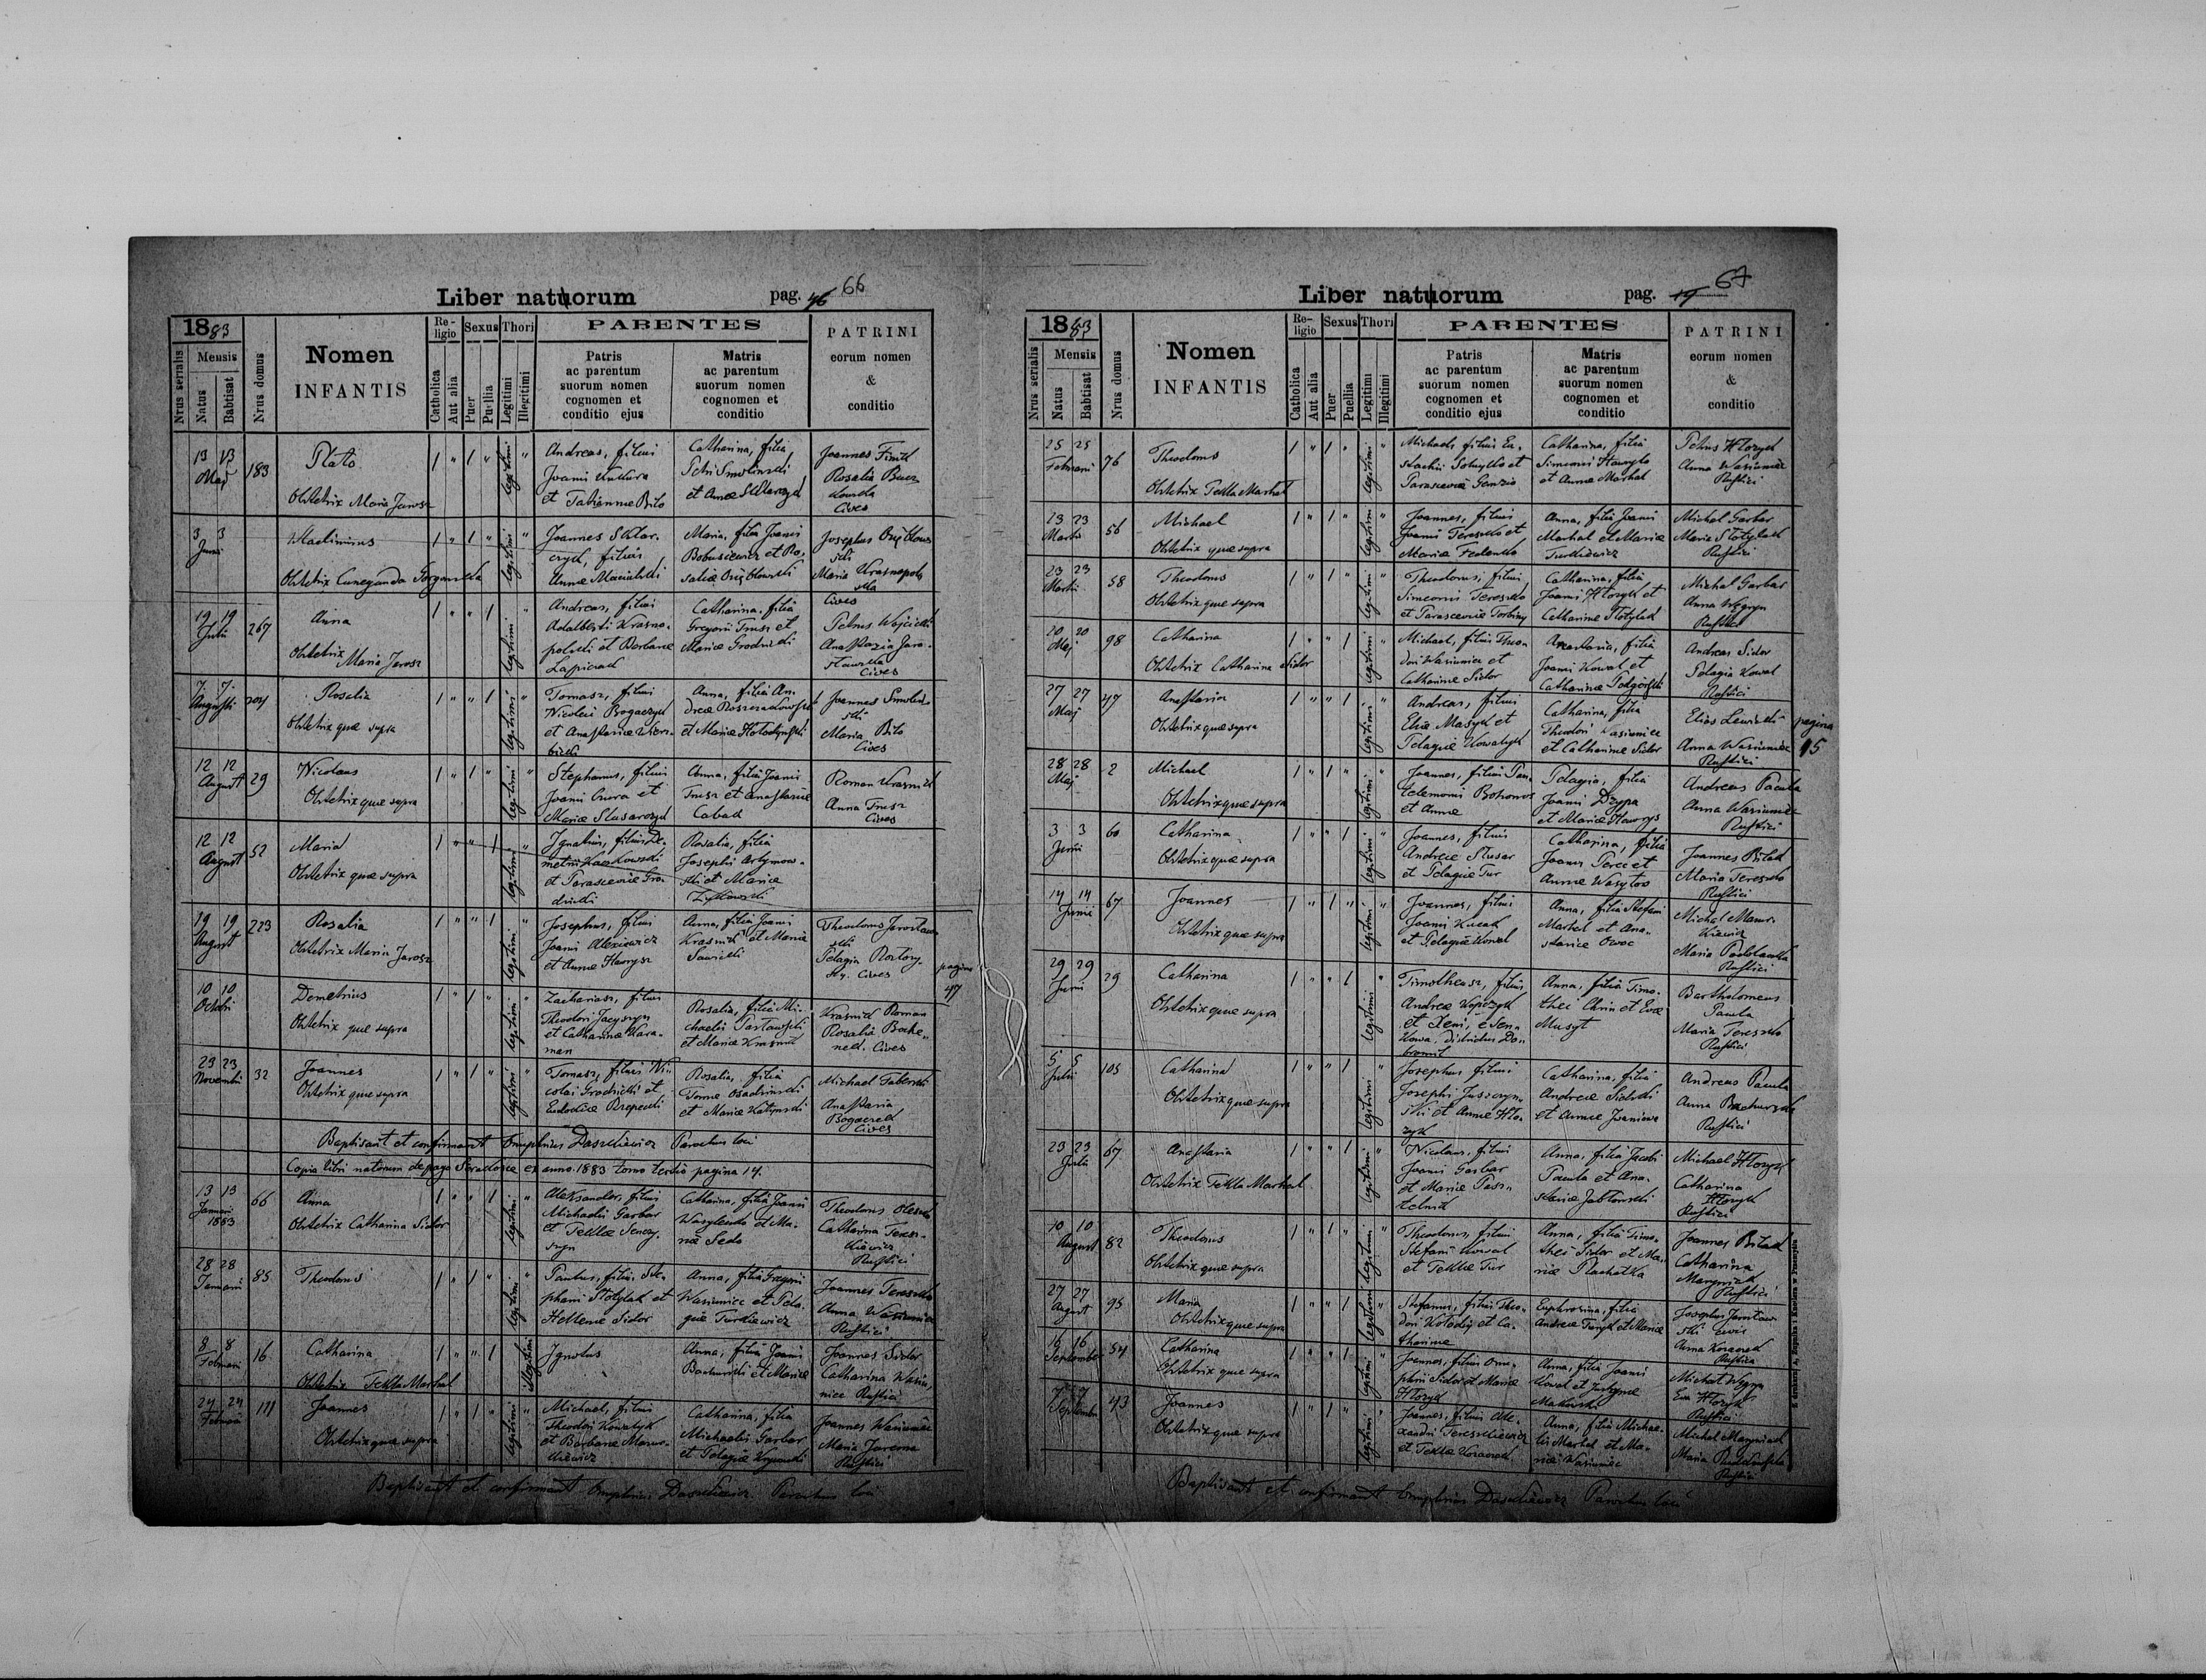 Liber natuorum pag. 46 66
1883
Nrus serialis
Mensis
Natus
Babtisat
Nrus domus
Nomen
INFANTIS
Re-
ligio
Catholica
Aut alia
Sexus
Puer
Puellia
Thori
Legitimi
Illegitimi
PARENTES
Patris
ac parentum
suorum nomen
cognomen et
conditio ejus
Matris
ac parentum
suorum nomen
cognomen et
conditio
PATRINI
eorum nomen
&
conditio
13 13 Maj 183
Plato
Obstetrix Maria Jarosz
legitimi
Andreas, filius
Joanni Kukura
et Tatiannae Bilo
Catharina, filia
Petri Smolinski
et Annae Sklarczyk
Joannes Finik
Rosalia
Cives
3 3 Junii
Wladimirus
Obstetrix Cunegunda Gorgowska
legitimi
Joannes Sklar-
czyk, filius
Annae
Maria, filia Joanni
Bobusiewicz et Ro-
saliae
Josephus
Maria Krasnopols
ska
Cives
19 19 Julii 267
Anna
Obstetrix Maria Jarosz
legitimi
Andreas, filius
Adalberti Krasno-
polski et Barbarae
Lapiczak
Catharina, filia
Gregorii Trusz et
Mariae Grodzicki
Petrus Wojcicki
Anastazia Jaro-
sławska
Cives
7 7 Augusti 204
Rosalia
Obstetrix quae supra
legitimi
Tomasz, filius
Nicolai Bogaczyk
et Anastasiae Wierz-
bicki
Anna, filia An-
dreae
et Mariae
Joannes Smolin-
ski
Maria Bilo
Cives
12 12 August 29
Nicolaus
Obstetrix quae supra
legitimi
Stephanus, filius
Joanni et
Mariae Slusarczyk
Anna, filia Joanni
Trusz et Anastasiae
Cabak
Roman Krasnik
Anna Trusz
Cives
12 12 August 52
Maria
Obstetrix quae supra
legitimi
Ignatius, filius De-
metrii Kaczkowski
et Parasceviae Gro-
dzicki
Rosalia, filia
Josephi Artymow-
ski et Mariae
19 19 August 223
Rosalia
Obstetrix Maria Jarosz
legitimi
Josephus, filius
Joanni Alexiewicz
et Annae Hawrysz
Anna, filia Joanni
Krasnik et Mariae
Sawicki
Theodorus Jarosław-
ski
Pelagia
Cives
pagina
47
10 10 Octobri
Demetrius
Obstetrix quae supra
legitimi
Zacharias, filius
Theodori Jacyszyn
et Catharinae Kara-
man
Rosalia, filia Mi-
chaelis
et Mariae Krasnik
Krasnik Roman
Rosalia
Cives
23 23 Novembri 32
Joannes
Obstetrix quae supra
legitimi
Tomasz, filius Ni-
colai Grodzicki et
Eudociae
Rosalia, filia
Tomae Osadzinski
et Mariae
Michael
Anastasia
Cives
Baptisavit et confirmavit Onuphrius Daszkiewicz Parochus loci
Copia libri natorum de pago Stradocie ex anno 1883 tomo tertio pagina 14.
13 13 Januari 1883 66
Anna
Obstetrix Catharina Sidor
legitimi
Aleksander, filius
Michaelis Garbar
et Teklae Senczy-
szyn
Catharina, filia Joanni
Wasylenko et Ma-
riae Sedo
Theodorus
Catharina Teresz-
kiewicz
Rustici
28 28 Januari 85
Theodorus
legitimi
Paulus, filius Ste-
phani Stotylak et
Helenae Sidor
Anna, filia Gregorii
Wasiuniec et Pela-
giae Turkiewicz
Joannes Tereszko
Anna Wasiuniec
Rustici
8 8 Februari 16
Catharina
Obstetrix Tekla Markal
illegitimi
Ignotus
Anna, filia Joanni
Bachurski et Mariae
Joannes Sidor
Catharina Wasiu-
niec Rustici
24 24 Februari 111
Joannes
Obstetrix quae supra
legitimi
Michael, filius
Theodori Kowalyk
et Barbarae Mazur-
kiewicz
Catharina, filia
Michaelis Garbar
et Pelagiae
Joannes Wasiuniec
Maria
Rustici
Baptisavit et confirmavit Onuphrius Daszkiewicz Parochus loci
Liber natuorum pag. 67
1883
Nrus serialis
Mensis
Natus
Babtisat
Nrus domus
Nomen
INFANTIS
Re-
ligio
Catholica
Aut alia
Sexus
Puer
Puellia
Thori
Legitimi
Illegitimi
PARENTES
Patris
ac parentum
suorum nomen
cognomen et
conditio ejus
Matris
ac parentum
suorum nomen
cognomen et
conditio
PATRINI
eorum nomen
&
conditio
25 25 Februari 76
Theodorus
Obstetrix Tekla Markal
legitimi
Michael, filius Eu-
stachii et
Parasceviae
Catharina, filia
Simeonis Hawryło
et Annae Markal
Petrus Htozyk
Anna Wasiuniec
Rustici
23 23 Martii 56
Michael
Obstetrix quae supra
legitimi
Joannes, filius
Joanni Tereszko et
Mariae Fedenko
Anna, filia Joanni
Markal et Mariae
Turkiewicz
Michal Garbar
Maria Stotylak
Rustici
23 23 Martii 58
Theodorus
Obstetrix quae supra
legitimi
Theodorus, filius
Simeonis Tereszko
et Parasceviae
Catharina, filia
Joanni Htozyk et
Catharinae Stotylak
Michal Garbar
Anna Węgryn
Rustici
20 20 Maj 98
Catharina
Obstetrix Catharina Sidor
legitimi
Michael, filius Theo-
dori Wasiuniec et
Catharinae Sidor
Anastasia, filia
Joanni Kowal et
Catharinae Podgórski
Andreas Sidor
Pelagia Kowal
Rustici
27 27 Maj 47
Anastasia
Obstetrix quae supra
legitimi
Andreas, filius
Eliae Masyk et
Pelagiae Kowalyk
Catharina, filia
Theodori Wasiuniec
et Catharinae Sidor
Elias Lewicki
Anna Wasiuniec
Rustici
pagina
15
28 28 Maj 2
Michael
Obstetrix quae supra
legitimi
Joannes, filius Pan-
telemonis Bohonos
et Annae
Pelagia, filia
Joanni Dzypa
et Mariae Hawrys
Andreas Pawła
Anna Wasiuniec
Rustici
3 3 Junii 60
Catharina
Obstetrix quae supra
legitimi
Joannes, filius
Andreae Slusar
et Pelagiae Tur
Catharina, filia
Joanni et
Annae Wasylow
Joannes Bilak
Maria Tereszko
Rustici
14 14 Junii 67
Joannes
Obstetrix quae supra
legitimi
Joannes, filius
Joanni Kucak
et Pelagiae Kowal
Anna, filia Stefani
Markal et Ana-
stasiae Owoc
Michal Mazur-
kiewicz
Maria
Rustici
29 29 Junii 29
Catharina
Obstetrix quae supra
legitimi
Timotheusz, filius
Andreae Kopczyk
et Xeni, e Sen-
kowa, districtus Do-
bromil
Anna, filia Timo-
thei et Evae
Musyt
Bartholomeus
Pawła
Maria Tereszko
Rustici
5 5 Julii 105
Catharina
Obstetrix quae supra
legitimi
Josephus filius
Josephi Juszczyn-
ski et Annae Hto-
zyk
Catharina, filia
Andreae
et Annae Iwaniowa
Andreas Pawła
Anna Bachurska
Rustici
23 23 Julii 67
Anastasia
Obstetrix Tekla Markal
legitimi
Nicolaus, filius
Joanni Garbar
et Mariae Pasz-
telnik
Anna, filia Jacobi
Pawła et Ana-
stasiae Jabłonski
Michael Htozyk
Catharina
Htozyk
Rustici
10 10 August 82
Theodorus
Obstetrix quae supra
legitimi
Theodorus, filius
Stefani Kowal
et Teklae Tur
Anna, filia Timo-
thei Sidor et Ma-
riae Płachatka
Joannes Bilak
Catharina
Maryniak
Rustici
27 27 August 95
Maria
Obstetrix quae supra
legitimi
Stefanus, filius Theo-
dori Kołodij et Ca-
tharinae
Euphrosina, filia
Andreae et Mariae
Josephus Jarosław-
ski civis
Anna
Rustica
16 16 Septembri 54
Catharina
Obstetrix quae supra
legitimi
Joannes, filius Onu-
phrii Sidor et Mariae
Htozyk
Anna, filia Joanni
Kowal et Justynae
Michal Węgryn
Eva Htozyk
Rustici
7 7 Septembri 43
Joannes
Obstetrix quae supra
legitimi
Joannes, filius Ale-
xandri Tereszkiewicz
et Teklae
Anna, filia Michae-
lis Markal et Ma-
riae Wasiuniec
Michal Maryniak
Maria
Rustici
Baptisavit et confirmavit Onuphrius Daszkiewicz Parochus loci